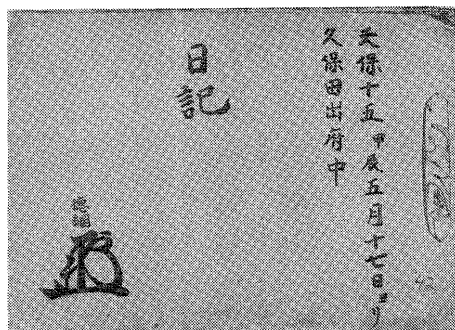 天保十五甲辰五月十七日ヨリ
久保田出府中
日記